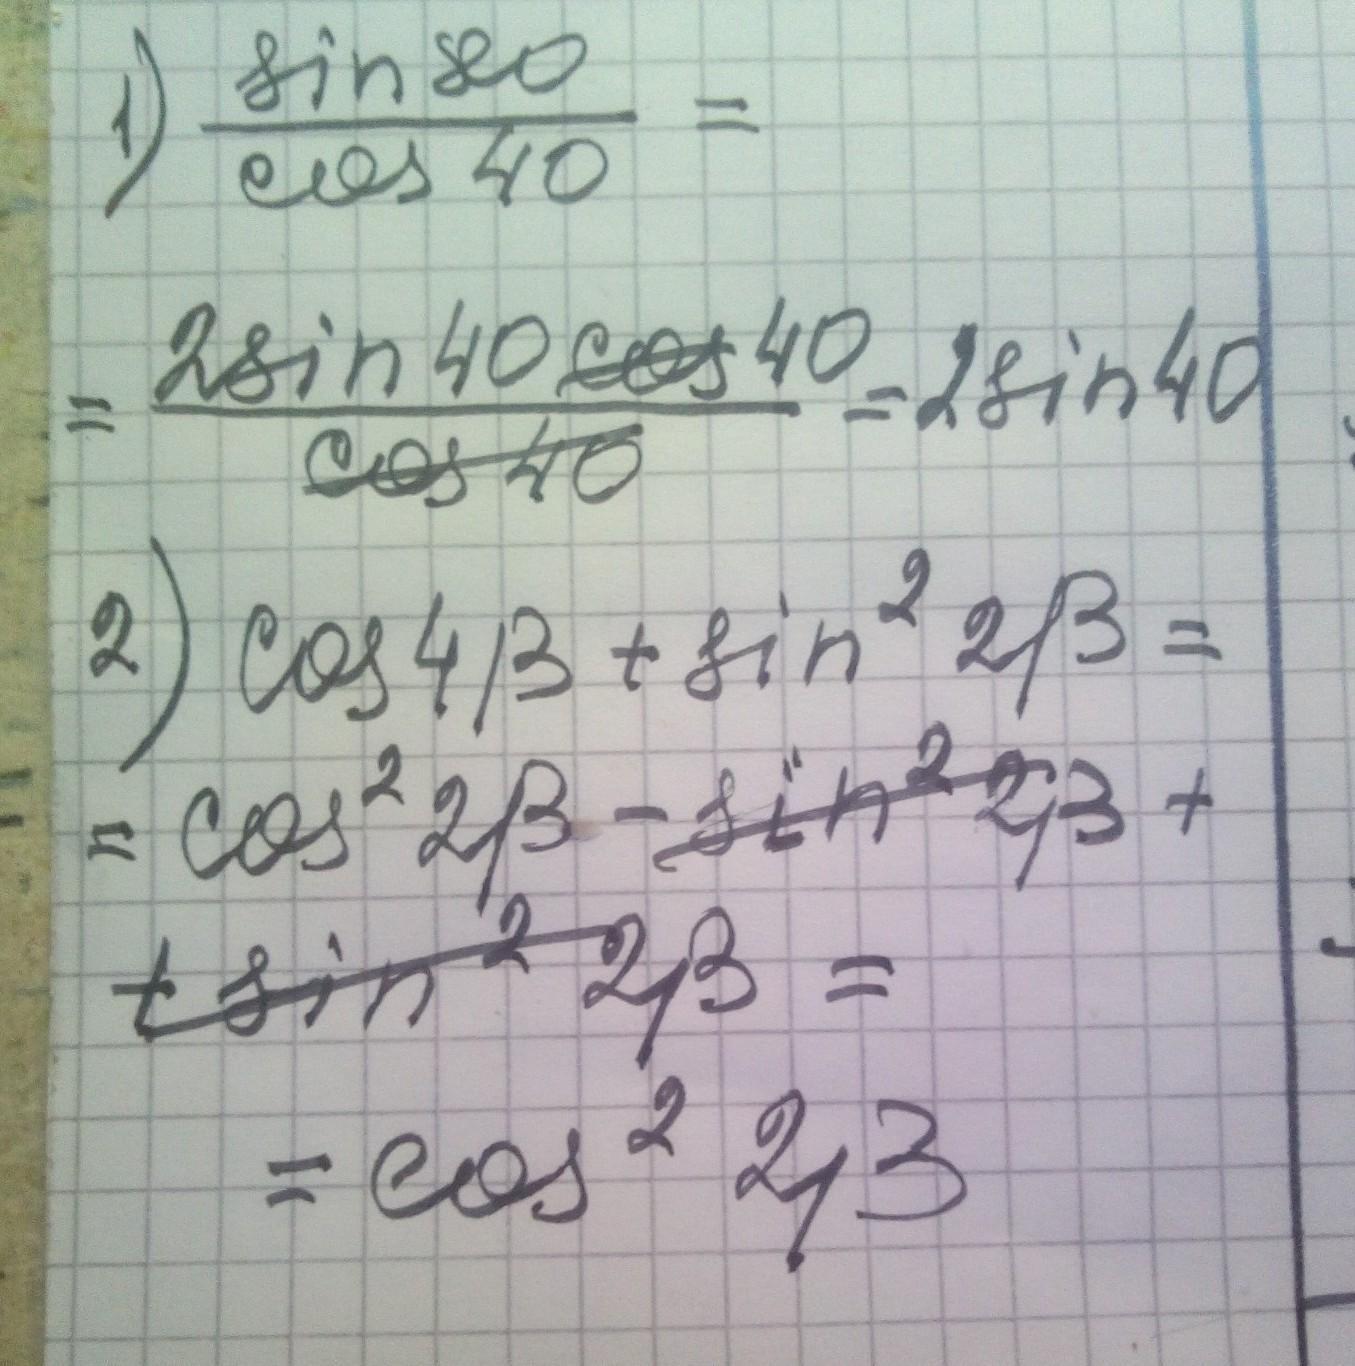 1) sin 80 / cos 40 =
= 2 sin 40 cos 40 / cos 40 = 2 sin 40
2) cos 4β + sin² 2β =
= cos² 2β - sin² 2β +
+ sin² 2β =
= cos² 2β